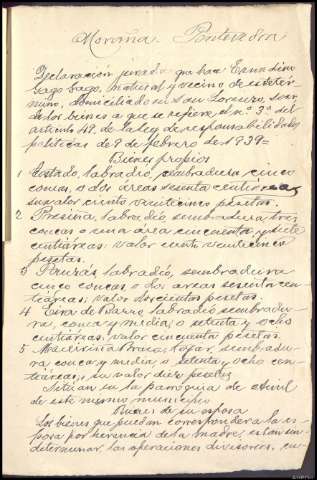 Moraña Pontevedra
Declaración jurada que hace
Gago Gago, natural y vecino de este tér-
mino, domiciliado en San Lorenzo, jurar
de los bienes a que se refiere el nº 3º del
artículo 49, de la ley de responsabilidades
políticas de 9 de febrero de 1939=
Bienes propios
1 Costado, labradío, sembradura cinco
concas, o dos áreas sesenta centiáreas
su valor ciento veinticinco pesetas.
2 labradío, sembradura tres
concas o una área cincuenta y siete
centiáreas; valor ciento veinticinco
pesetas.
3 labradío, sembradura
cinco concas o dos areas sesenta cen-
tiáreas; valor doscientas pesetas.
4 Eira de labradío sembradu-
ra, conca y media, o setenta y ocho
centiáreas, valor cincuenta pesetas.
5 tojar, sembradu-
ra conca y media o setenta y ocho cen-
tiáreas, su valor diez pesetas
Sitúan en la parroquia de
de este mismo municipio
Bienes de su esposa
Los bienes que puedan corresponder a la es-
posa por herencia de la madre, están sin
determinar las operaciones divisorias, cu-